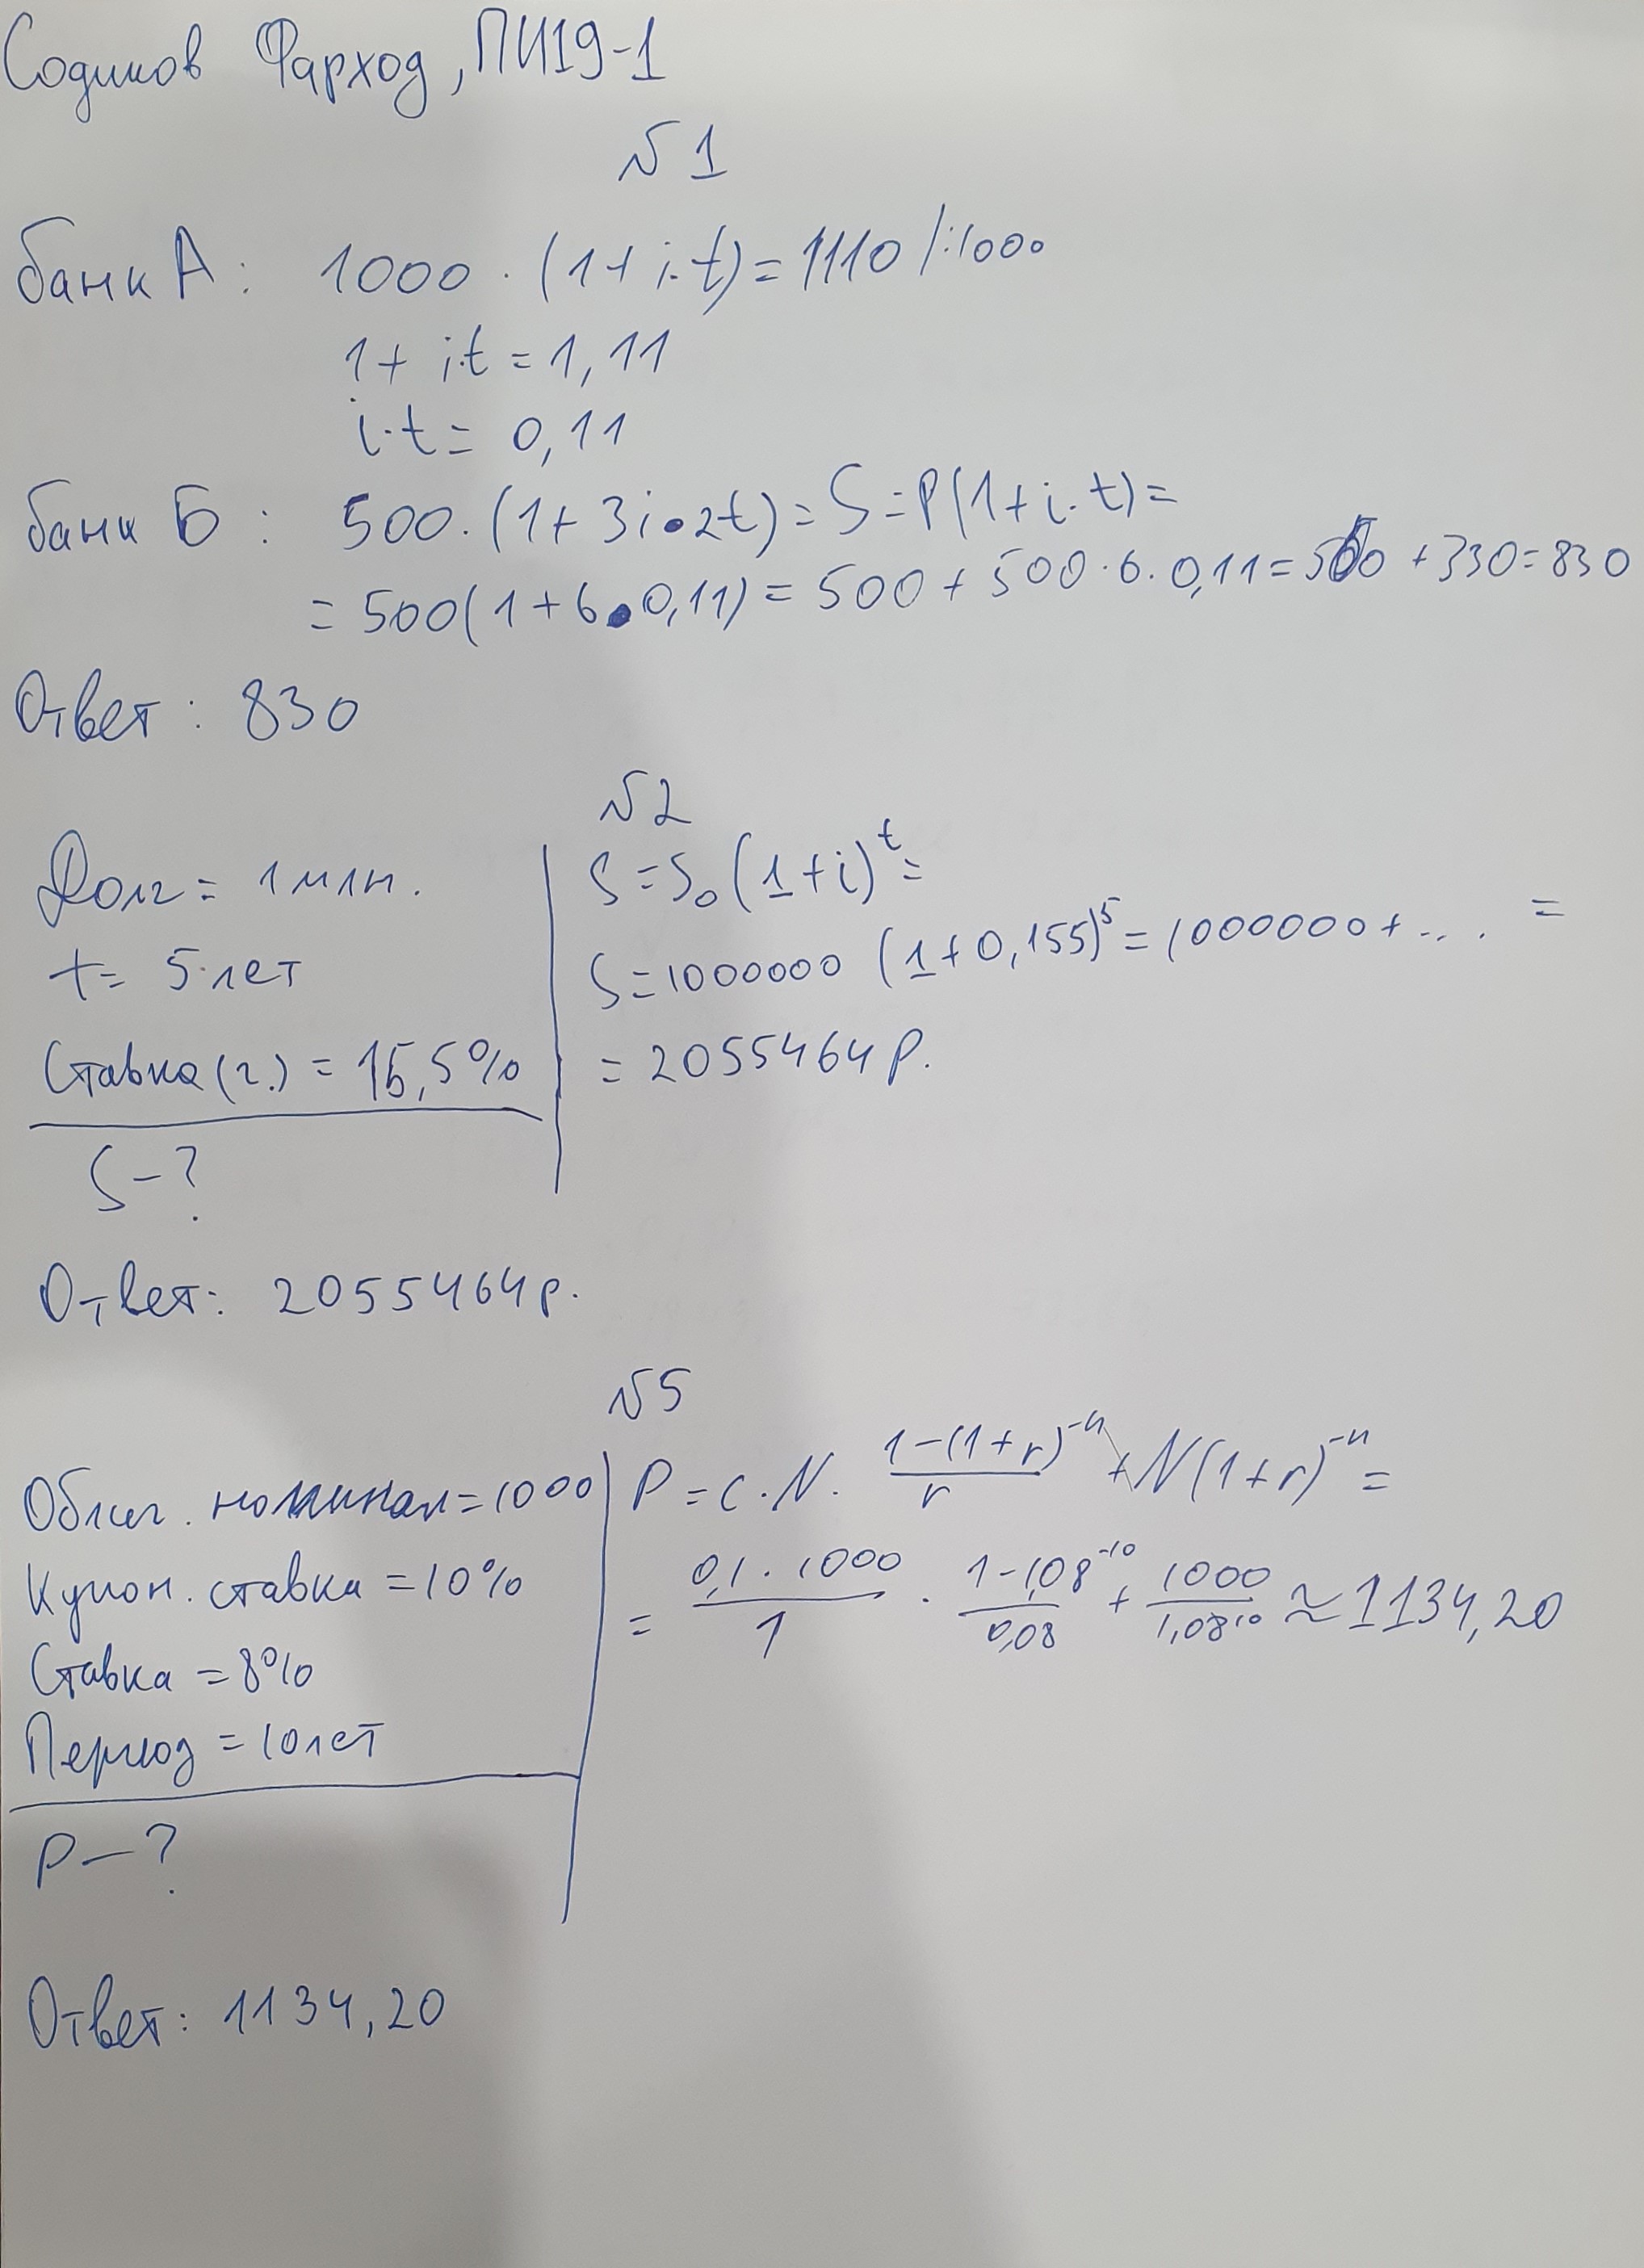 Содиков Фарход, ПИ19-1
№1
банк А: 1000 · (1 + i·t) = 1110 /:1000
1 + i·t = 1,11
i·t = 0,11
банк Б: 500 · (1 + 3i · 2t) = S = P(1 + i·t) =
= 500(1 + 6 · 0,11) = 500 + 500 · 6 · 0,11 = 500 + 330 = 830
Ответ: 830
№2
Долг = 1 млн.
t = 5 лет
Ставка (г.) = 15,5%
S - ?
S = S₀ (1 + i)^t =
S = 1000000 (1 + 0,155)^5 = 1000000 + ... =
= 2055464 р.
Ответ: 2055464 р.
№5
Облиг. номинал = 1000
Купон. ставка = 10%
Ставка = 8%
Период = 10 лет
P - ?
P = C · N · (1 - (1 + r)^-n)/r + N(1 + r)^-n =
= (0,1 · 1000)/1 · (1 - 1,08^-10)/0,08 + 1000/1,08^10 ≈ 1134,20
Ответ: 1134,20